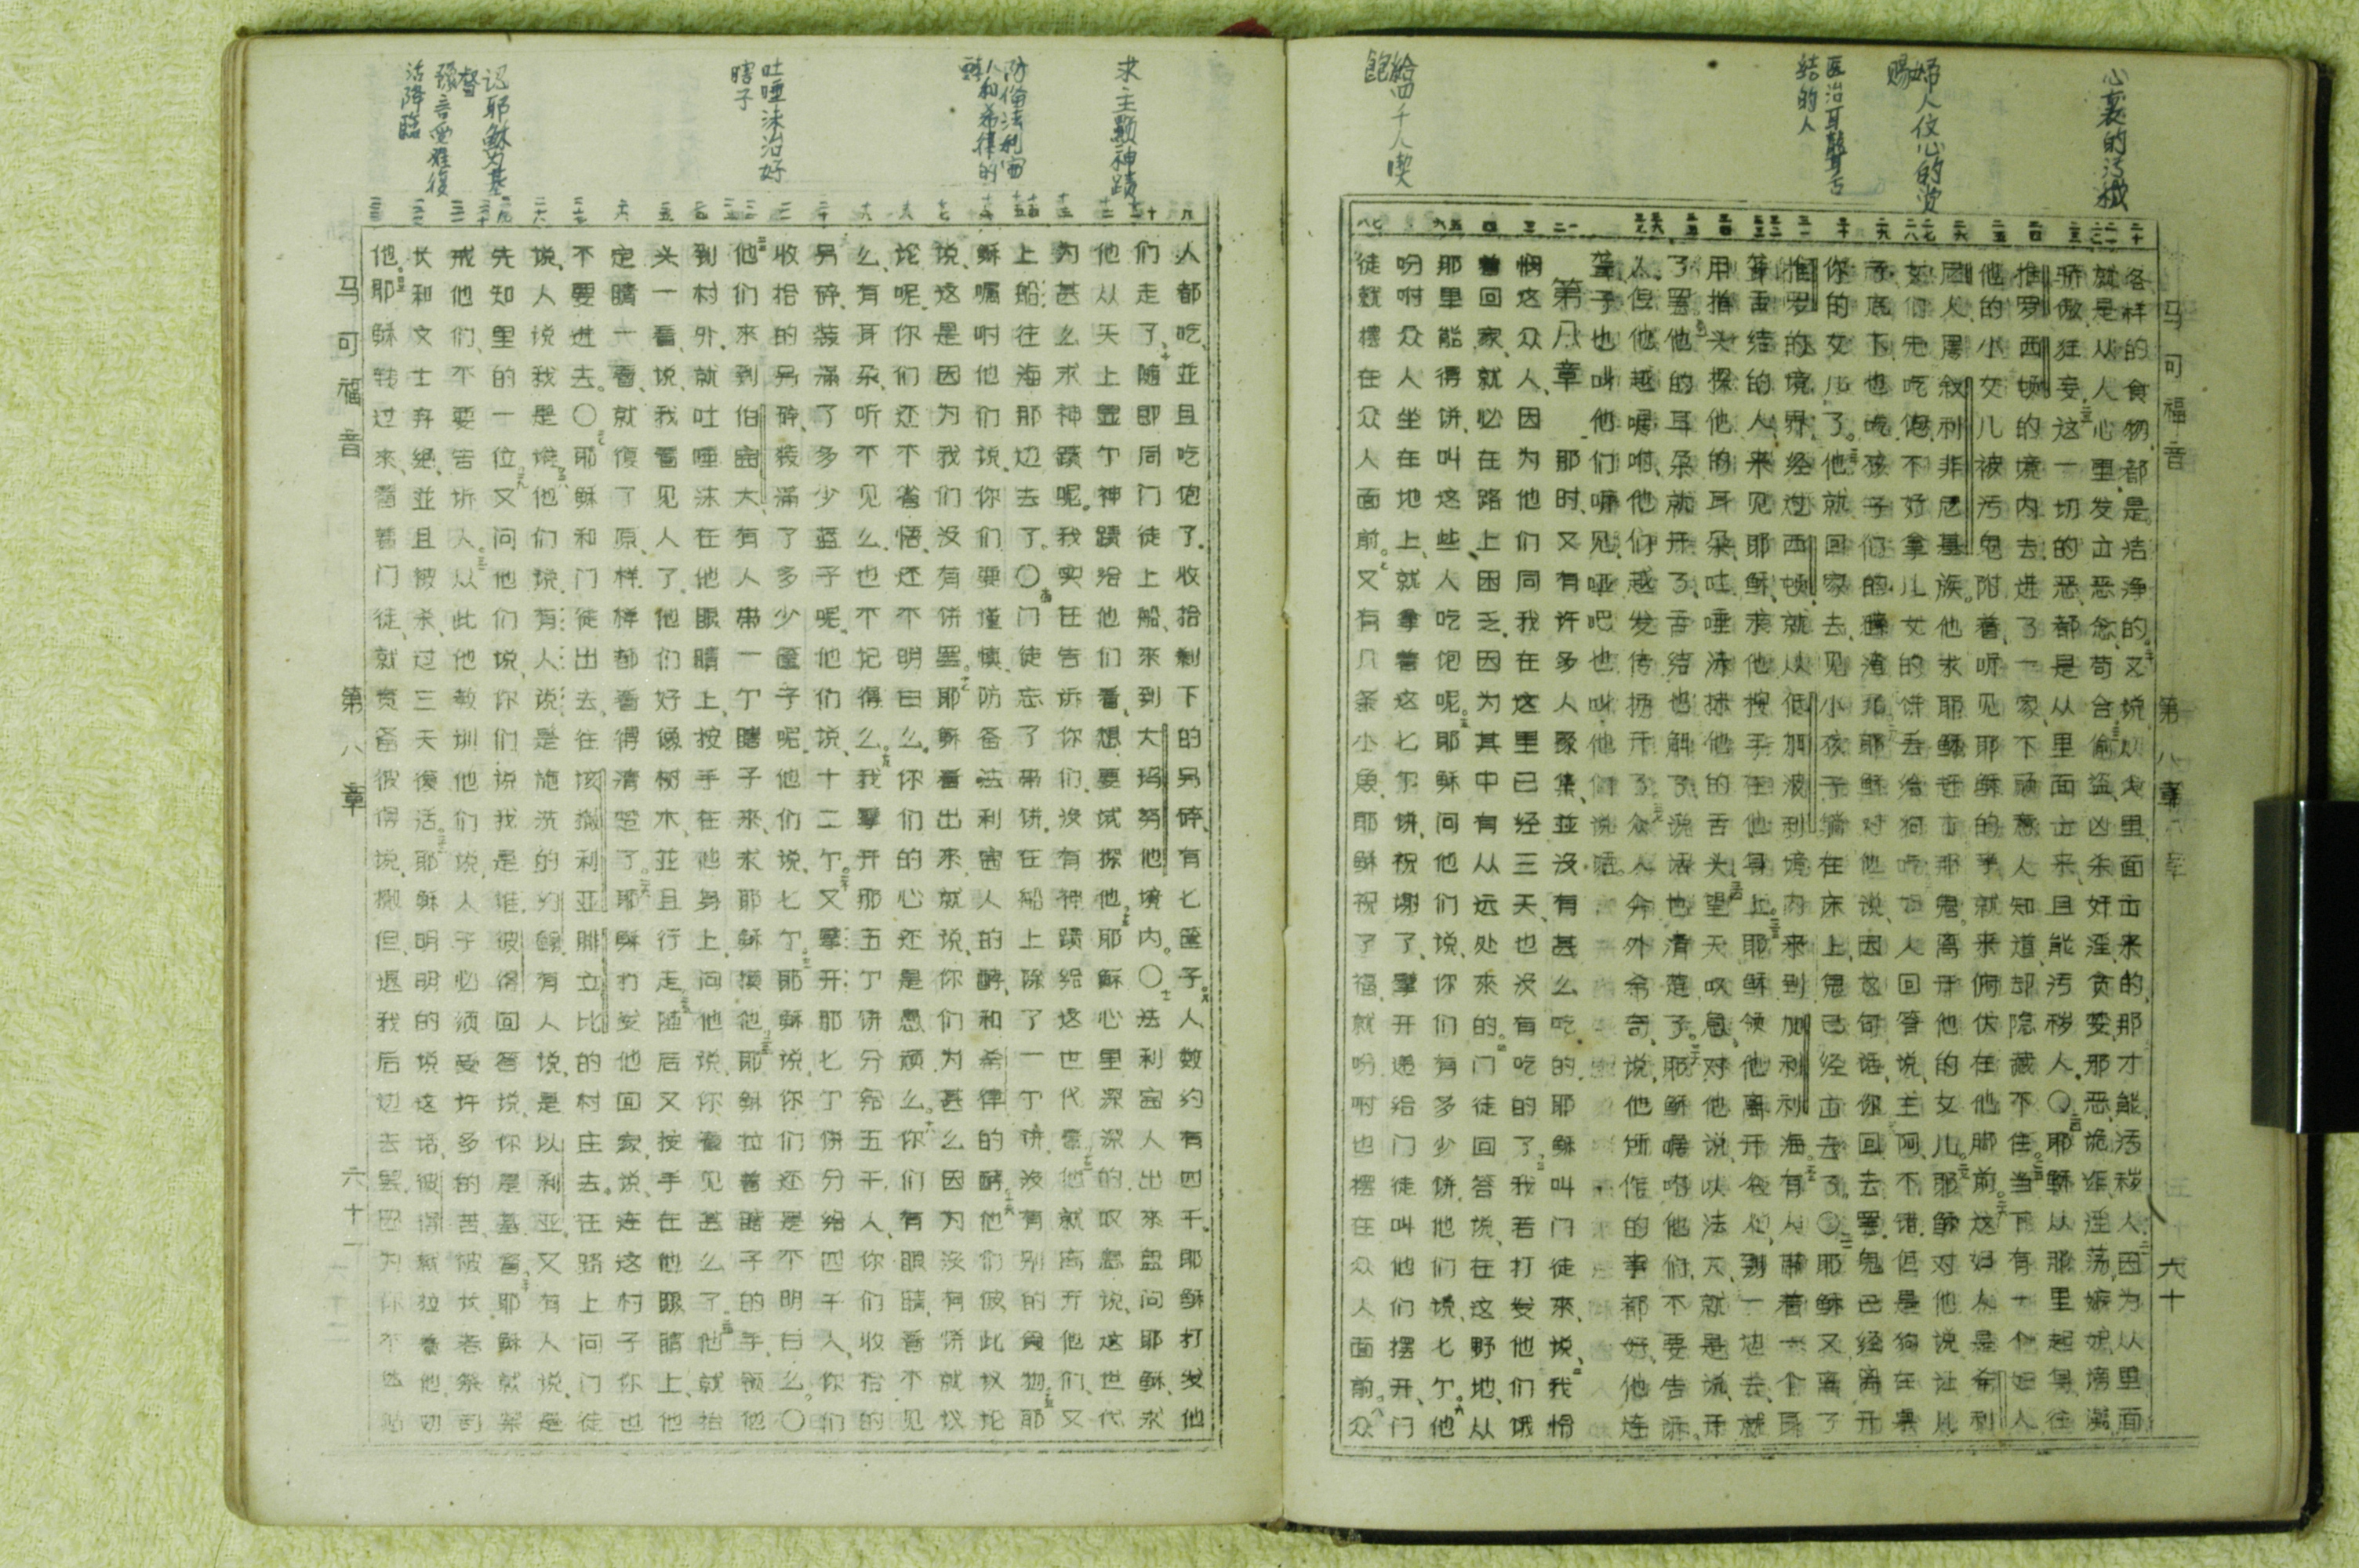 心裏的污穢
婦人信心的赏赐
医治耳聾舌结的人
給四千人喫飽
各样的食物、都是洁净的。又说、从人里面出来的、那才能污秽人。因为从里面
就是从人心里、发出恶念、苟合、偷盗、凶杀、奸淫、贪婪、那恶、诡诈、淫荡、嫉妒、谤渎、
骄傲、狂妄。这一切的恶、都是从里面出来、且能污秽人。〇耶稣从那里起身往
推罗西顿的境内去、进了一家、不愿意人知道、却隐藏不住。当下有一个妇人
他的小女儿被污鬼附着、听见耶稣的事、就来俯伏在他脚前。这妇人是希利
尼人、属叙利非尼基族。他求耶稣赶出那鬼、离开他的女儿。耶稣对他说让儿
女们先吃饱、不好拿儿女的饼丢给狗吃。妇人回答说、主阿、不错、但是狗在桌
子底下、也吃孩子们的碎渣儿。耶稣对他说、因这句话、你回去罢、鬼已经离开
你的女儿了。他就回家去、见小孩子躺在床上、鬼已经出去了。〇耶稣又离了
推罗的境界、经过西顿、就从低加波利境内来到加利利海。有人带着一个耳
聋舌结的人、来见耶稣、求他按手在他身上。耶稣领他离开众人、到一边去、就
用指头探他的耳朵、吐唾沫抹他的舌头、望天叹息、对他说、以法大、就是说、开
了罢。他的耳朵就开了、舌结也解了、说话也清楚了。耶稣嘱咐他们、不要告诉
人、但他越嘱咐、他们越发传扬开了。众人分外希奇、说、他所作的事都好、他连
聋子也叫他们听见、哑吧也叫他们说话。
第八章
那时、又有许多人聚集、並没有甚么吃的、耶稣叫门徒来、说、我怜
悯这众人、因为他们同我在这里已经三天、也没有吃的了、我若打发他们饿
着回家、就必在路上困乏、因为其中有从远处来的。门徒回答说、在这野地、从
那里能得饼、叫这些人吃饱呢。耶稣问他们说、你们有多少饼、他们说、七个。他
吩咐众人坐在地上、就拿着这七个饼、祝谢了、擘开、递给门徒叫他们摆开、门
徒就摆在众人面前。又有几条小鱼、耶稣祝了福、就吩咐也摆在众人面前。众
马可福音 第八章 六十
求主顯神蹟
防備法利赛人和希律的酵
吐唾沫治好瞎子
认耶稣为基督
豫言受难復活降臨
人都吃、並且吃饱了、收拾剩下的另碎、有七筐子。人数约有四千。耶稣打发他
们走了、随即同门徒上船、来到大玛努他境内。〇法利宙人出来盘问耶稣、求
他从天上显个神蹟给他们看、想要试探他、耶稣心里深深的叹息、说、这世代
为甚么求神蹟呢、我实在告诉你们、没有神蹟给这世代看。他就离开他们、又
上船往海那边去了。〇门徒忘了带饼、在船上除了一个饼、没有别的食物。耶
稣嘱咐他们说、你们要谨慎、防备法利宙人的酵、和希律的酵。他们彼此议论
说、这是因为我们没有饼罢。耶稣看出来、就说、你们为甚么因为没有饼就议
论呢、你们还不省悟、还不明白么、你们的心还是愚顽么。你们有眼睛、看不见
么、有耳朵、听不见么、也不记得么。我擘开那五个饼分给五千人、你们收拾的
另碎、装满了多少蓝子呢、他们说、十二个。又擘开那七个饼分给四千人、你们
收拾的另碎、装满了多少筐子呢、他们说、七个。耶稣说、你们还是不明白么。〇
他们来到伯宙大、有人带一个瞎子来、求耶稣摸他、耶稣拉着瞎子的手、领他
到村外、就吐唾沫在他眼睛上、按手在他身上、问他说、你看见甚么了。他就抬
头一看、说、我看见人了、他们好像树木、並且行走。随后又按手在他眼睛上、他
定睛一看、就復了原、样样都看得清楚了。耶稣打发他回家、说、连这村子你也
不要进去。〇耶稣和门徒出去、往该撒利亚腓立比的村庄去。在路上问门徒
说、人说我是谁。他们说、有人说、是施洗的约翰、有人说、是以利亚、又有人说、是
先知里的一位。又问他们说、你们说我是谁、彼得回答说、你是基督。耶稣就禁
戒他们、不要告诉人。从此他教训他们说、人子必须受许多的苦、被长老祭司
长和文士弃绝、並且被杀、过三天復活。耶稣明明的说这话、彼得就拉着他、劝
他。耶稣转过来、看着门徒、就责备彼得说、撒但、退我后边去罢、因为你不体贴
马可福音 第八章 六十一